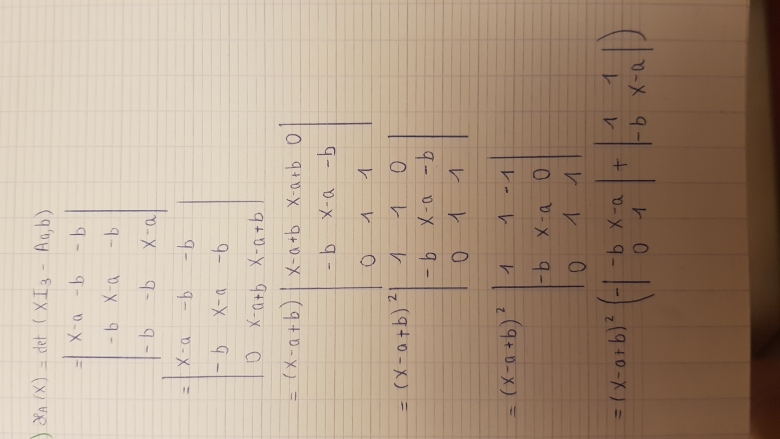 ) χA(X) = det (XI3 - Aa,b)
= | X-a -b -b |
| -b X-a -b |
| -b -b X-a |
= | X-a -b -b |
| -b X-a -b |
| 0 X-a+b X-a+b |
= (X-a+b) | X-a+b X-a+b 0 |
| -b X-a -b |
| 0 1 1 |
= (X-a+b)² | 1 1 0 |
| -b X-a -b |
| 0 1 1 |
= (X-a+b)² | 1 1 -1 |
| -b X-a 0 |
| 0 1 1 |
= (X-a+b)² ( - | -b X-a | + | 1 1 | )
| 0 1 | | -b X-a |